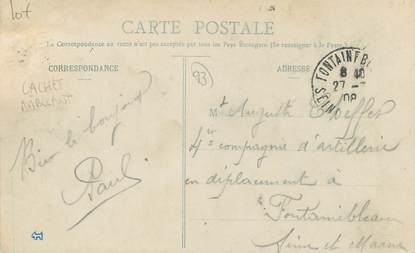 lot
CARTE POSTALE
La Correspondance au recto n'est pas acceptée par tous les Pays Étrangers. (Se renseigner à la Poste)
CORRESPONDANCE
ADRESSE
CACHET
93
FONTAINEB
8 40
27 - 7
08
Bien le bonjour
Paul
Mr Auguste
4e compagnie d'artillerie
en déplacement à
Fontainebleau
Seine et Marne